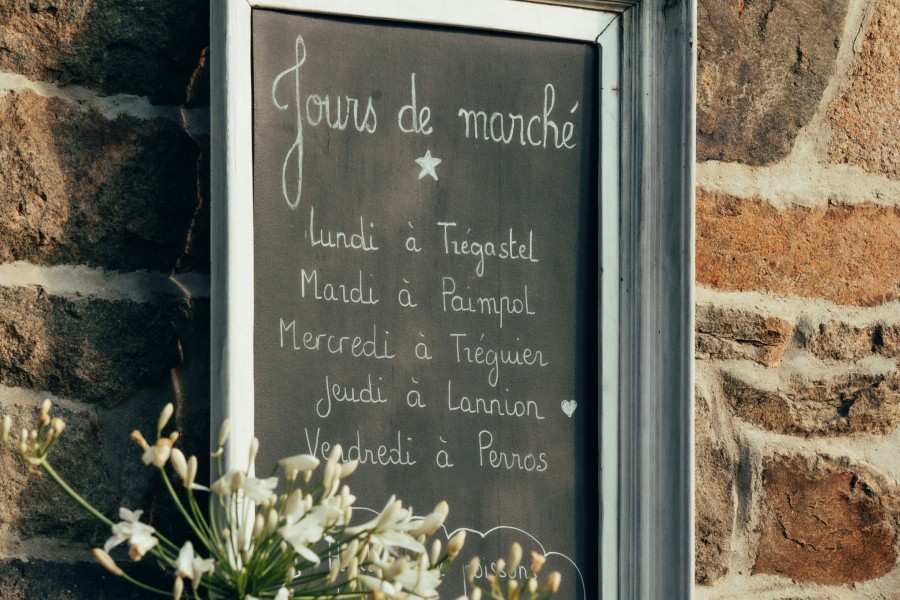 Jours de marché
Lundi à Trégastel
Mardi à Paimpol
Mercredi à Tréguier
Jeudi à Lannion
Vendredi à Perros
poissons